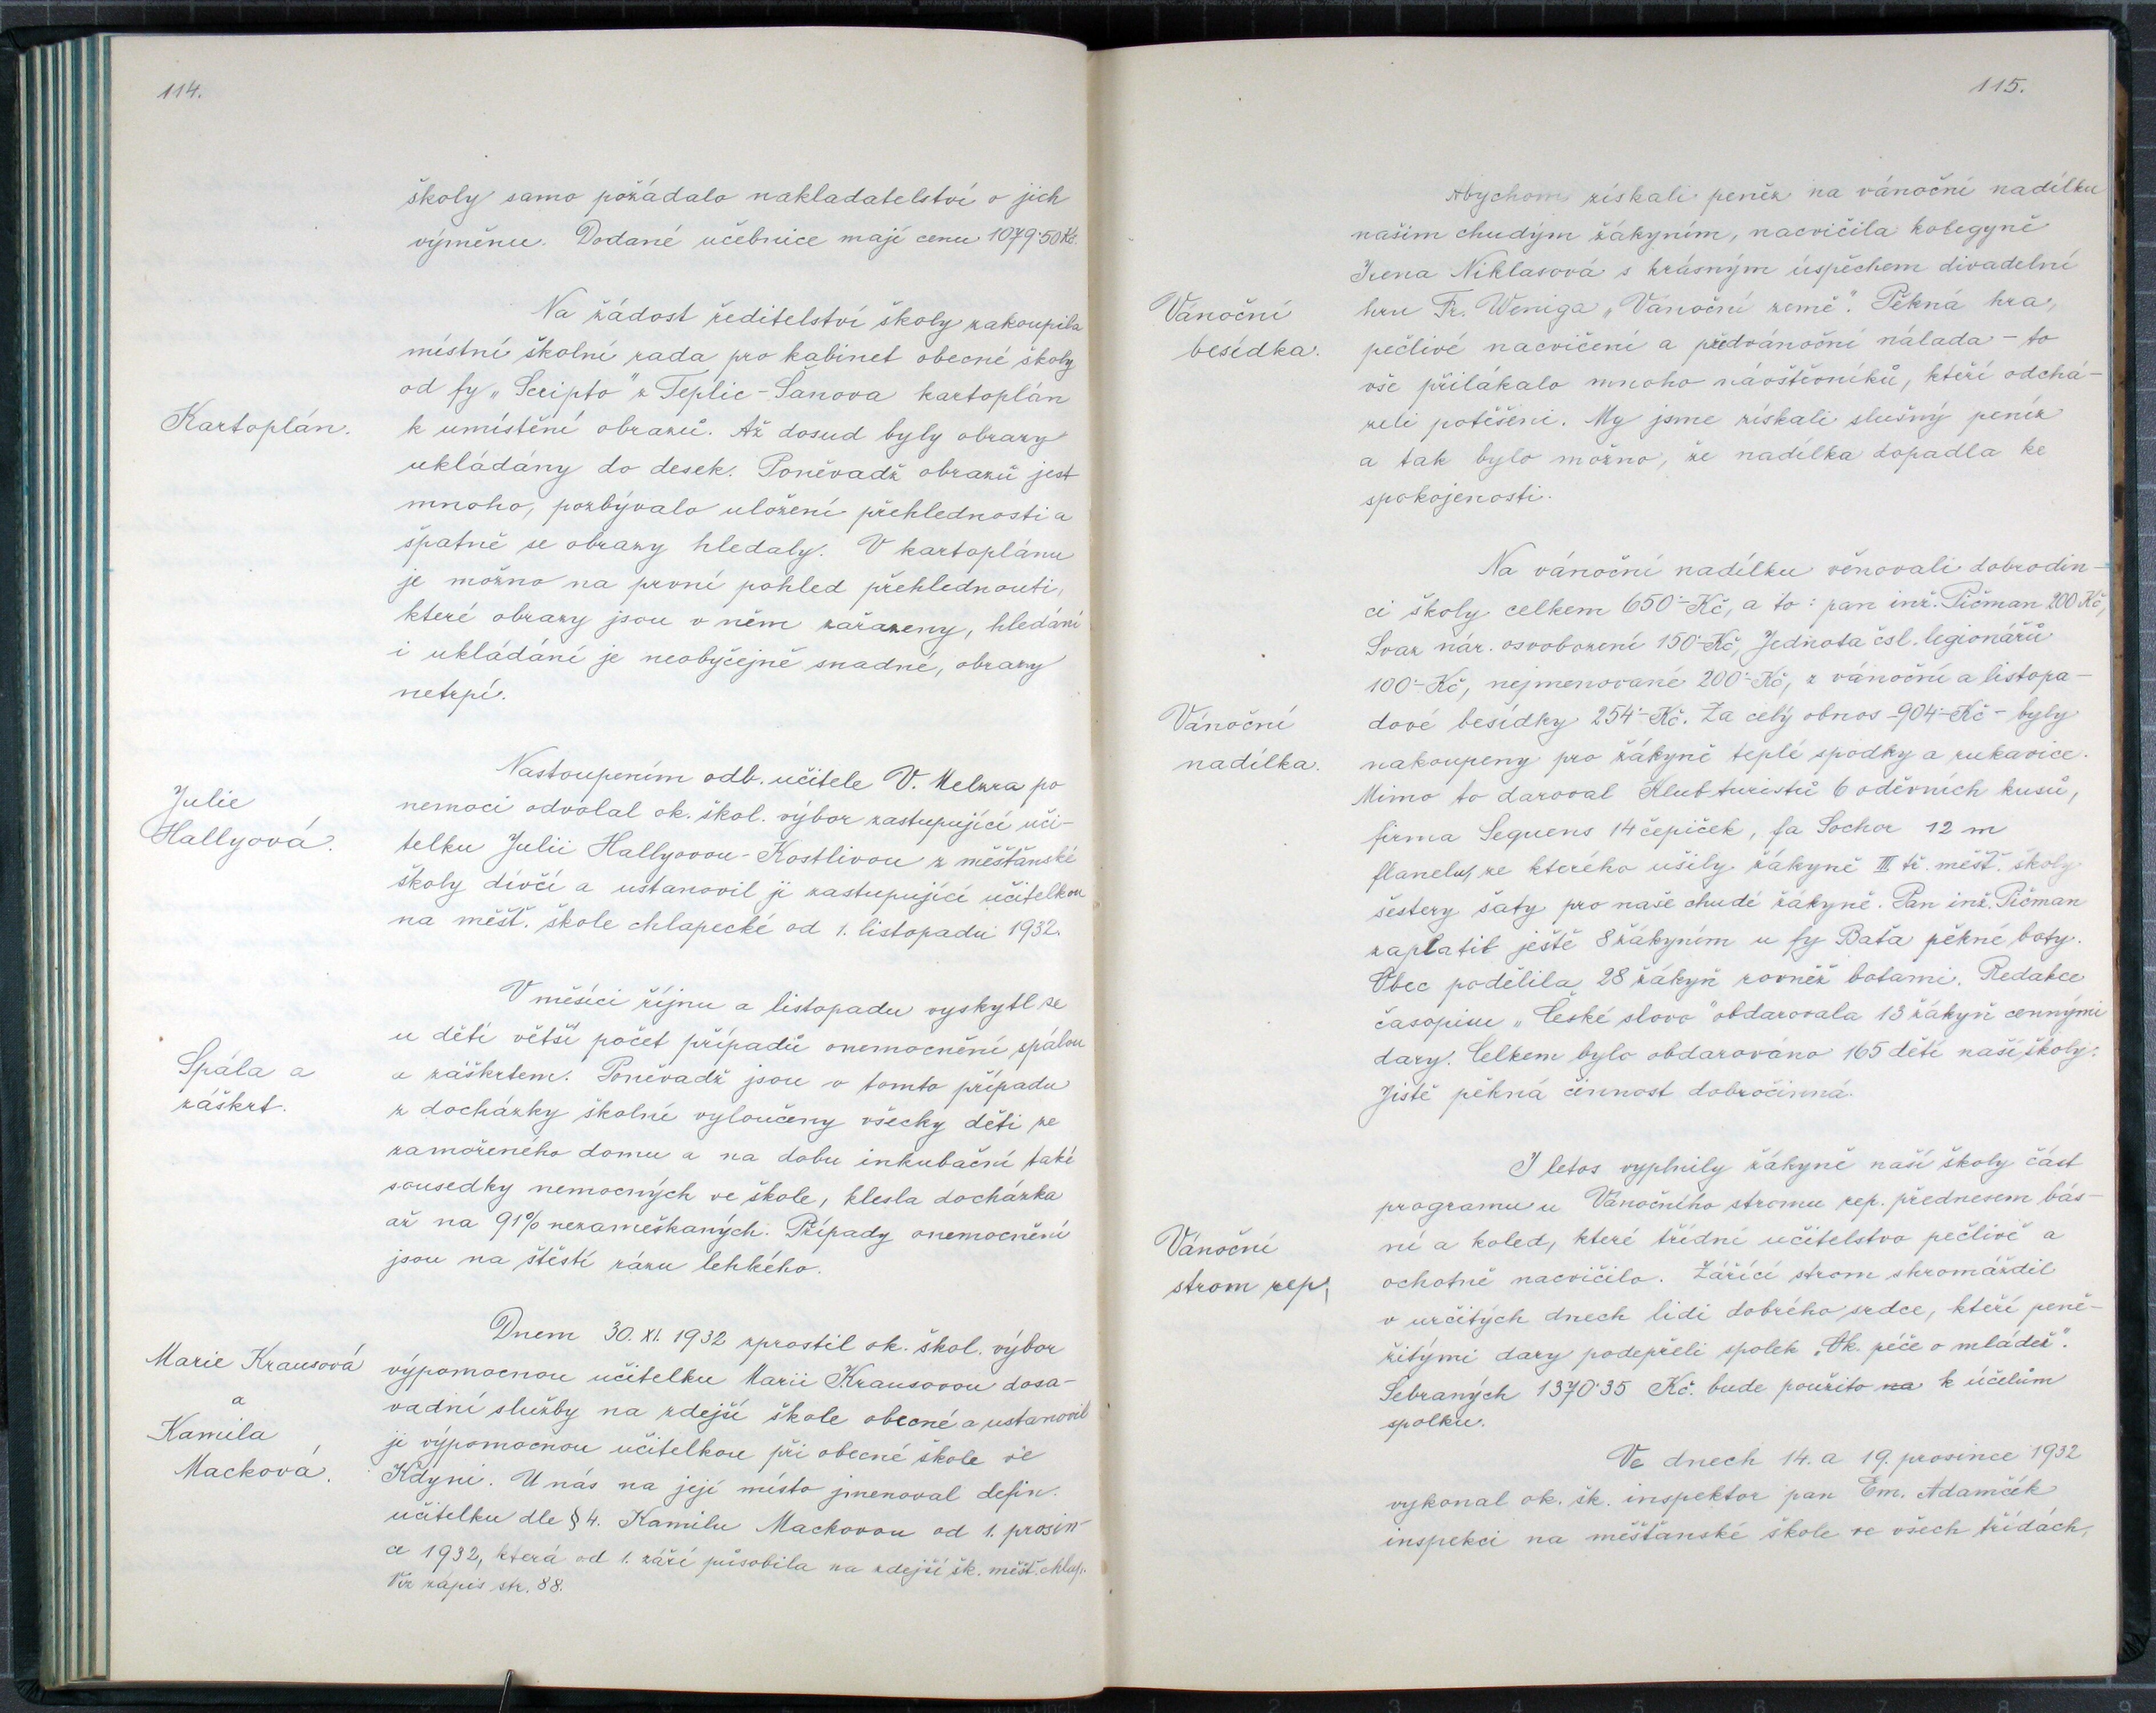 114.
školy samo požádalo nakladatelství o jich
výměnu. Dodané učebnice mají cenu 1079·50 Kč.
Na žádost ředitelství školy zakoupila
místní školní rada pro kabinet obecné školy
od fy „Scripto" z Teplic-Šanova kartoplán
Kartoplán.
k umístění obrazů. Až dosud byly obrazy
ukládány do desek. Poněvadž obrazů jest
mnoho, pozbývalo uložení přehlednosti a
špatně se obrazy hledaly. V kartoplánu
je možno na první pohled přehlednouti,
které obrazy jsou v něm zařazeny, hledání
i ukládání je neobyčejně snadné, obrazy
netrpí.
Nastoupením odb. učitele V. Melzra po
Julie
Hallyová.
nemoci odvolal ok. škol. výbor zastupující uči-
telku Julii Hallyovou-Kostlivou z měšťanské
školy dívčí a ustanovil ji zastupující učitelkou
na měšť. škole chlapecké od 1. listopadu 1932.
V měsíci říjnu a listopadu vyskytl se
u dětí větší počet případů onemocnění spálou
Spála a
záškrt.
a záškrtem. Poněvadž jsou v tomto případu
z docházky školní vyloučeny všecky děti ze
zamořeného domu a na dobu inkubační také
sousedky nemocných ve škole, klesla docházka
až na 91% nezameškaných. Případy onemocnění
jsou na štěstí rázu lehkého.
Dnem 30. XI. 1932 zprostil ok. škol. výbor
Marie Krausová
a
Kamila
Macková.
výpomocnou učitelku Marii Krausovou dosa-
vadní služby na zdejší škole obecné a ustanovil
ji výpomocnou učitelkou při obecné škole ve
Kdyni. U nás na její místo jmenoval defin.
učitelku dle § 4. Kamilu Mackovou od 1. prosin-
ce 1932, která od 1. září působila na zdejší šk. měšť. chlap.
Viz zápis str. 88.
115.
Abychom získali peněz na vánoční nadílku
našim chudým žákyním, nacvičila kolegyně
Irena Niklasová s krásným úspěchem divadelní
Vánoční
besídka.
hru Fr. Weniga „Vánoční země". Pěkná hra,
pečlivé nacvičení a předvánoční nálada - to
vše přilákalo mnoho návštěvníků, kteří odchá-
zeli potěšeni. My jsme získali slušný peníz
a tak bylo možno, že nadílka dopadla ke
spokojenosti.
Na vánoční nadílku věnovali dobrodin-
ci školy celkem 650·- Kč, a to: pan inž. Pičman 200 Kč,
Svaz nár. osvobození 150·- Kč, Jednota čsl. legionářů
100·- Kč, nejmenované 200·- Kč, z vánoční a listopa-
Vánoční
nadílka.
dové besídky 254·- Kč. Za celý obnos - 904·- Kč - byly
nakoupeny pro žákyně teplé spodky a rukavice.
Mimo to daroval Klub turistů 6 oděvních kusů,
firma Sequens 14 čepiček, fa Sochor 12 m
flanelu, ze kterého ušily žákyně III tř. měšť. školy
šestery šaty pro naše chudé žákyně. Pan inž. Pičman
zaplatil ještě 8 žákyním u fy Baťa pěkné boty.
Obec podělila 28 žákyň rovněž botami. Redakce
časopisu „České slovo" obdarovala 13 žákyň cennými
dary. Celkem bylo obdarováno 165 dětí naší školy.
Jistě pěkná činnost dobročinná.
I letos vyplnily žákyně naší školy část
programu u Vánočního stromu rep. přednesem bás-
Vánoční
strom rep.
ní a koled, které třídní učitelstvo pečlivě a
ochotně nacvičilo. Zářící strom shromáždil
v určitých dnech lidi dobrého srdce, kteří peně-
žitými dary podepřeli spolek „Ok. péče o mládež".
Sebraných 1370·35 Kč. bude použito na k účelům
spolku.
Ve dnech 14. a 19. prosince 1932
vykonal ok. šk. inspektor pan Em. Adamčík
inspekci na měšťanské škole ve všech třídách,